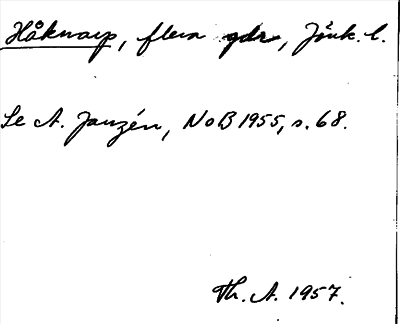 Håknarp, flera gdr, Jönk. l.
Se A. Janzén, NoB 1955, s. 68.
Th. A. 1957.